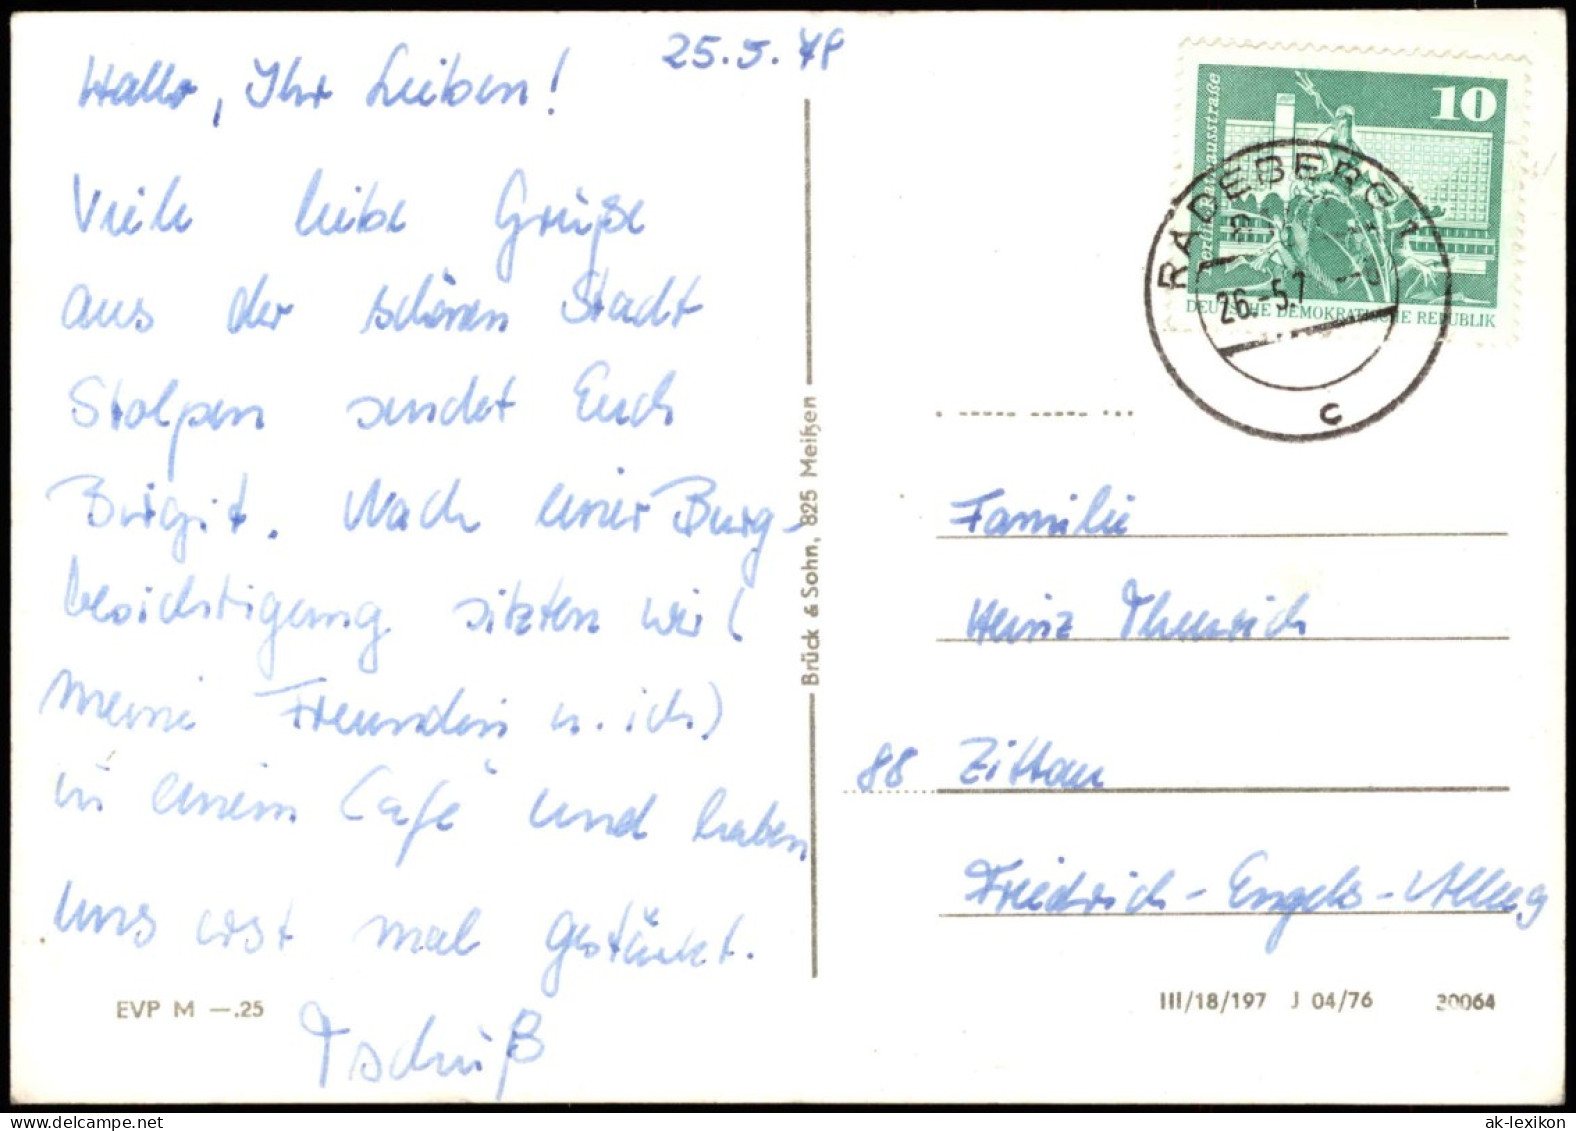 25.5.78
Hallo, Ihr Lieben!
Viele liebe Grüße
aus der schönen Stadt
Stolpen sendet Euch
Birgit. Nach einer Burg-
besichtigung sitzten wir (
meine Freundin u. ich)
in einem Café und haben
uns erst mal gestärkt.
Tschüß
EVP M —.25
Brück & Sohn, 825 Meißen
10
DEUTSCHE DEMOKRATISCHE REPUBLIK
RADEBERG 1
26.-5.7
c
Familie
Heinz
88 Zittau
Friedrich-Engels-Allee 9
III/18/197 J 04/76 30064
ak-lexikon